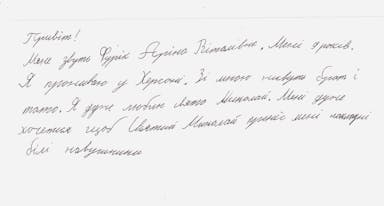 Привіт!
Мене звуть Фурік Аріна Віталіївна. Мені 9 років.
Я проживаю у Херсоні. Зі мною живуть брат і
тато. Я дуже люблю свято Миколай. Мені дуже
хочеться щоб Святий Миколай приніс мені
білі навушники